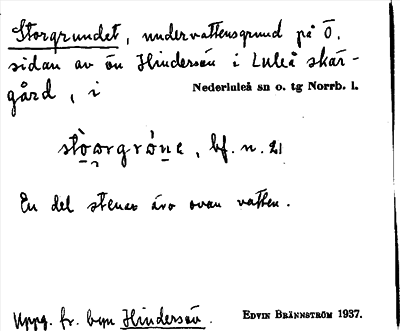 Storgrundet, undervattensgrund på Ö.
sidan av ön Hindersön i Luleå skär-
gård, i Nederluleå sn o. tg Norrb. l.
bf. n. 21
En del stenar äro ovan vatten.
Uppg. fr. byn Hindersön. EDVIN BRÄNNSTRÖM 1937.